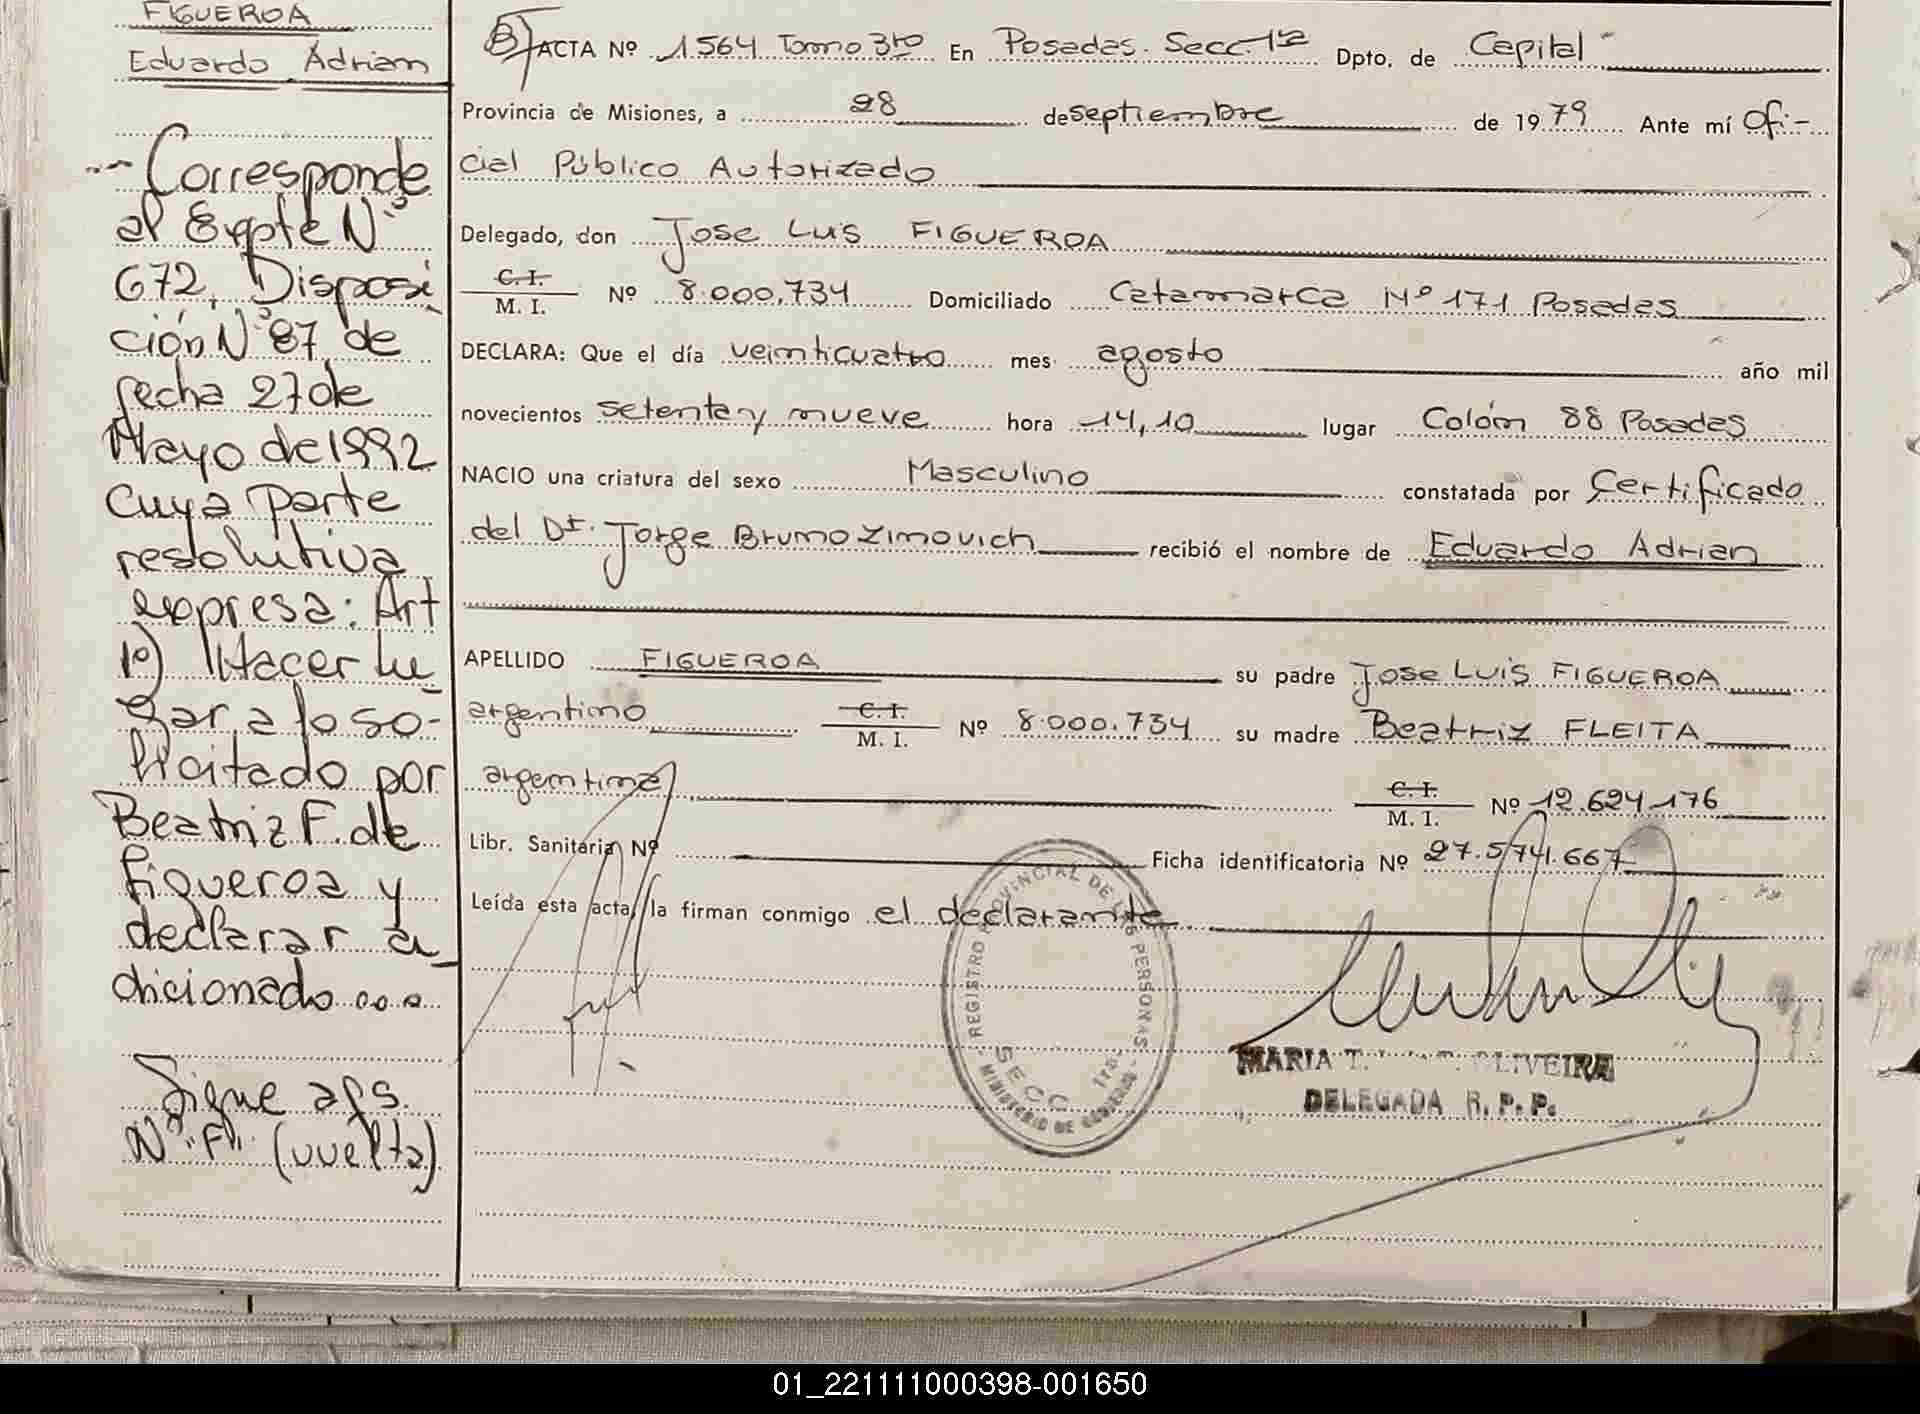 FIGUEROA
Eduardo Adrian
-- Corresponde
al Expte N°
672, Disposi
ción N° 87 de
fecha 27 de
Mayo de 1992
cuya parte
resolutiva
expresa: Art
1°) Hacer lu_
gar a lo so-
licitado por
Beatriz F. de
Figueroa y
declarar a_
dicionado...
Sigue a fs.
N° "F" (vuelta)
B) ACTA Nº 1564 Tomo 3ro En Posadas. Secc. 1ra Dpto. de Capital
Provincia de Misiones, a 28 de septiembre de 1979 Ante mí Ofi-
cial Público Autorizado
Delegado, don Jose Luis FIGUEROA
C. I.
M. I. Nº 8.000.734 Domiciliado Catamarca Nº 171 Posadas
DECLARA: Que el día veinticuatro mes agosto año mil
novecientos setenta y nueve hora 14,10 lugar Colón 88 Posadas
NACIO una criatura del sexo Masculino constatada por Certificado
del Dr. Jorge Bruno Zimovich recibió el nombre de Eduardo Adrian
APELLIDO FIGUEROA su padre Jose Luis FIGUEROA
argentino C. I. M. I. Nº 8.000.734 su madre Beatriz FLEITA
argentina C. I. M. I. Nº 12.624.176
Libr. Sanitaria Nº Ficha identificatoria Nº 27.574.667
Leída esta acta, la firman conmigo el declarante
REGISTRO PROVINCIAL DE LAS PERSONAS
SECC 1ra.
MINISTERIO DE GOBIERNO
MARIA T. OLIVEIRA
DELEGADA R. P. P.
01_221111000398-001650